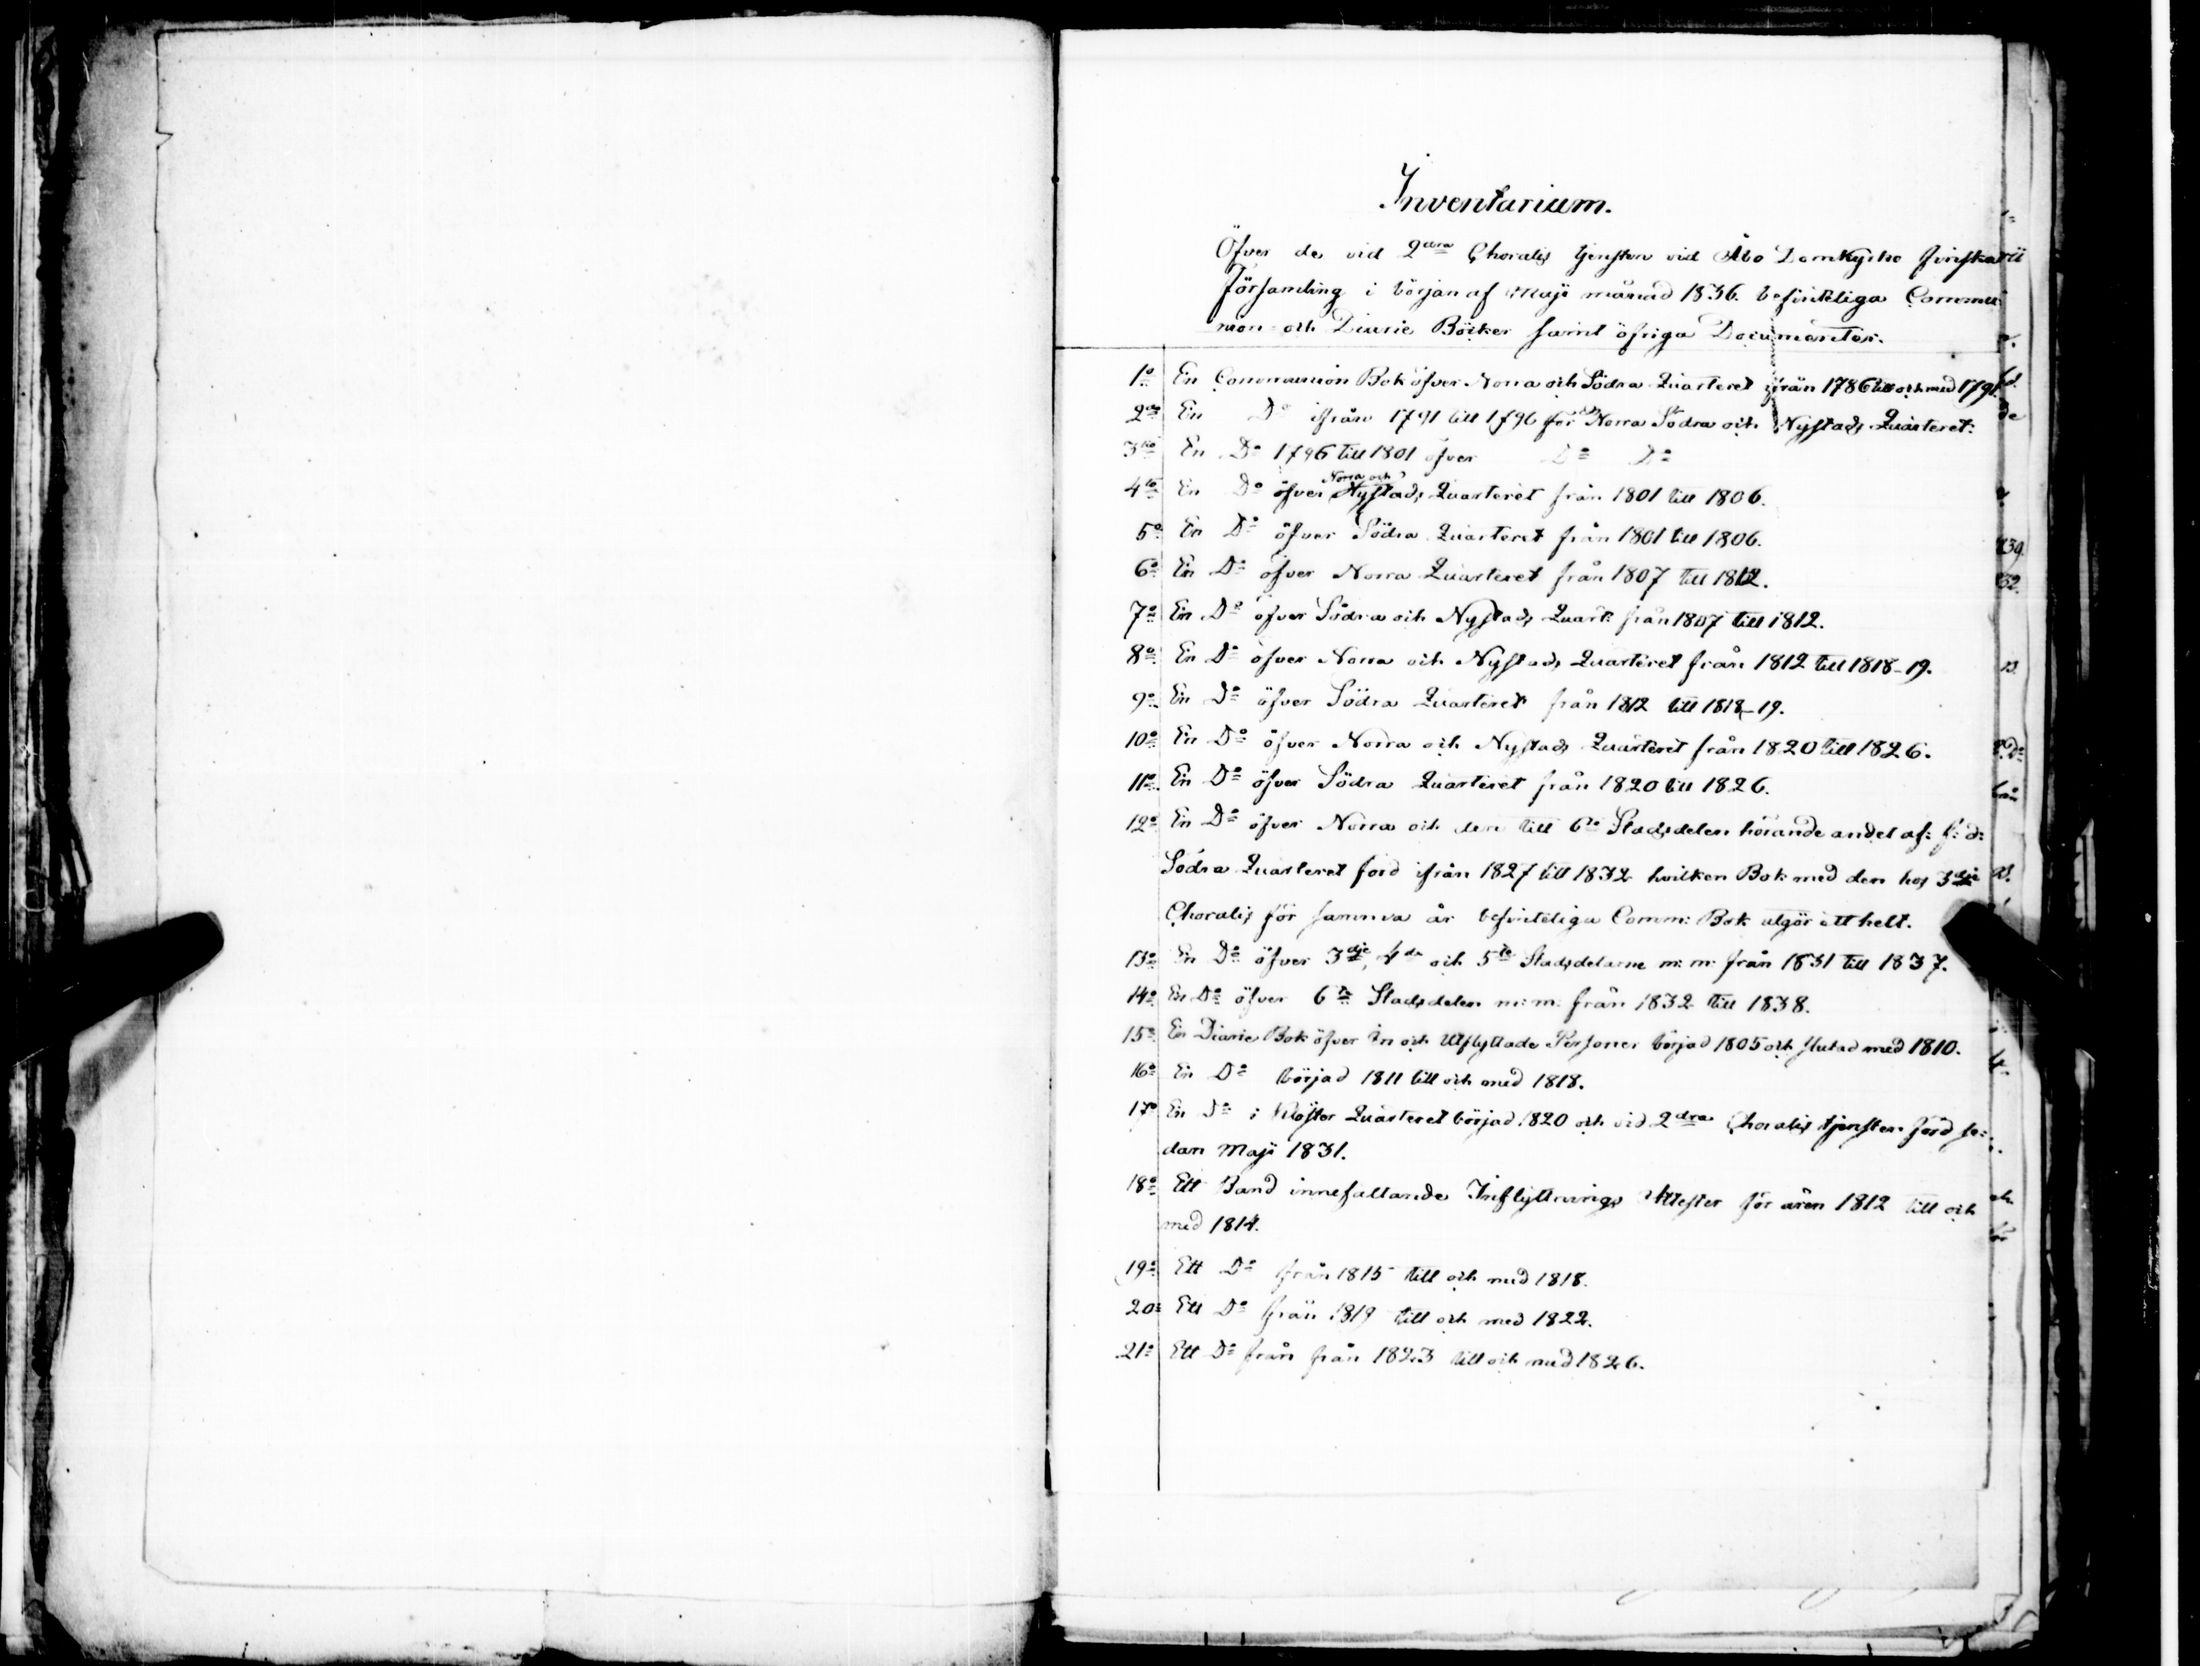 Inventarium.
Öfver de vid 2dra Choralis tjensten vid Åbo Domkyrko Finska
Församling i början af Maji månad 1836. befinteliga Commu-
nion- och Diarie Böcker samt öfriga Documenter.
1o En Communion Bok öfver Norra och Södra Quarteret ifrån 1786 till och med 1791.
2do En Do ifrån 1791 till 1796 för Norra Södra och Nystads Quarteret:
3tio En Do 1796 till 1801 öfver Do Do
4to En Do öfver Norra och Nystads Quarteret från 1801 till 1806.
5o En Do öfver Södra Quarteret från 1801 till 1806.
6o En Do öfver Norra Quarteret från 1807 till 1812.
7o En Do öfver Södra och Nystads Quart: från 1807 till 1812.
8o En Do öfver Norra och Nystads Quarteret från 1812 till 1818-19.
9o En Do öfver Södra Quarteret från 1812 till 1818-19.
10o En Do öfver Norra och Nystads Quarteret från 1820 till 1826.
11o En Do öfver Södra Quarteret från 1820 till 1826.
12o En Do öfver Norra och den till 6te Stadsdelen hörande andel af: f: d:
Södra Quarteret förd ifrån 1827 till 1832 hvilken Bok med den hos 3dje
Choralis för samma år befinteliga Comm: Bok utgör ett helt.
13o En Do öfver 3dje, 4de och 5te Stadsdelarne m: m: från 1831 till 1837.
14o En Do öfver 6te Stadsdelen m: m: från 1832 till 1838.
15o En Diarie Bok öfver In och Utflyttade Personer börjad 1805 och slutad med 1810.
16o En Do börjad 1811 till och med 1818.
17o En Do i Kloster Quarteret börjad 1820 och vid 2dra Choralis tjensten förd se-
dan Maji 1831.
18o Ett Band innefattande Inflyttnings Attester för åren 1812 till och
med 1814.
19o Ett Do från 1815 till och med 1818.
20o Ett Do från 1819 till och med 1822.
21o Ett Do från från 1823 till och med 1826.